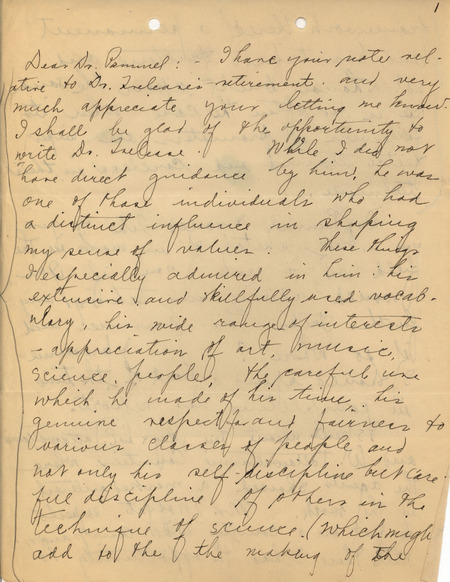 1
Dear Dr. Pammel: - I have your note rel-
ative to Dr. Trelease's retirement and very
much appreciate your letting me know.
I shall be glad of the opportunity to
write Dr. Trelease. While I did not
have direct guidance by him, he was
one of those individuals who had
a distinct influence in shaping
my sense of values. These things
I especially admired in him: his
extensive and skillfully used vocab-
ulary, his wide range of interests
- appreciation of art, music,
science, people, the careful use
which he made of his time, his
genuine respect and fairness to
various classes of people and
not only his self-discipline but care-
ful discipline of others in the
technique of science. (Which might
add to the the making of the